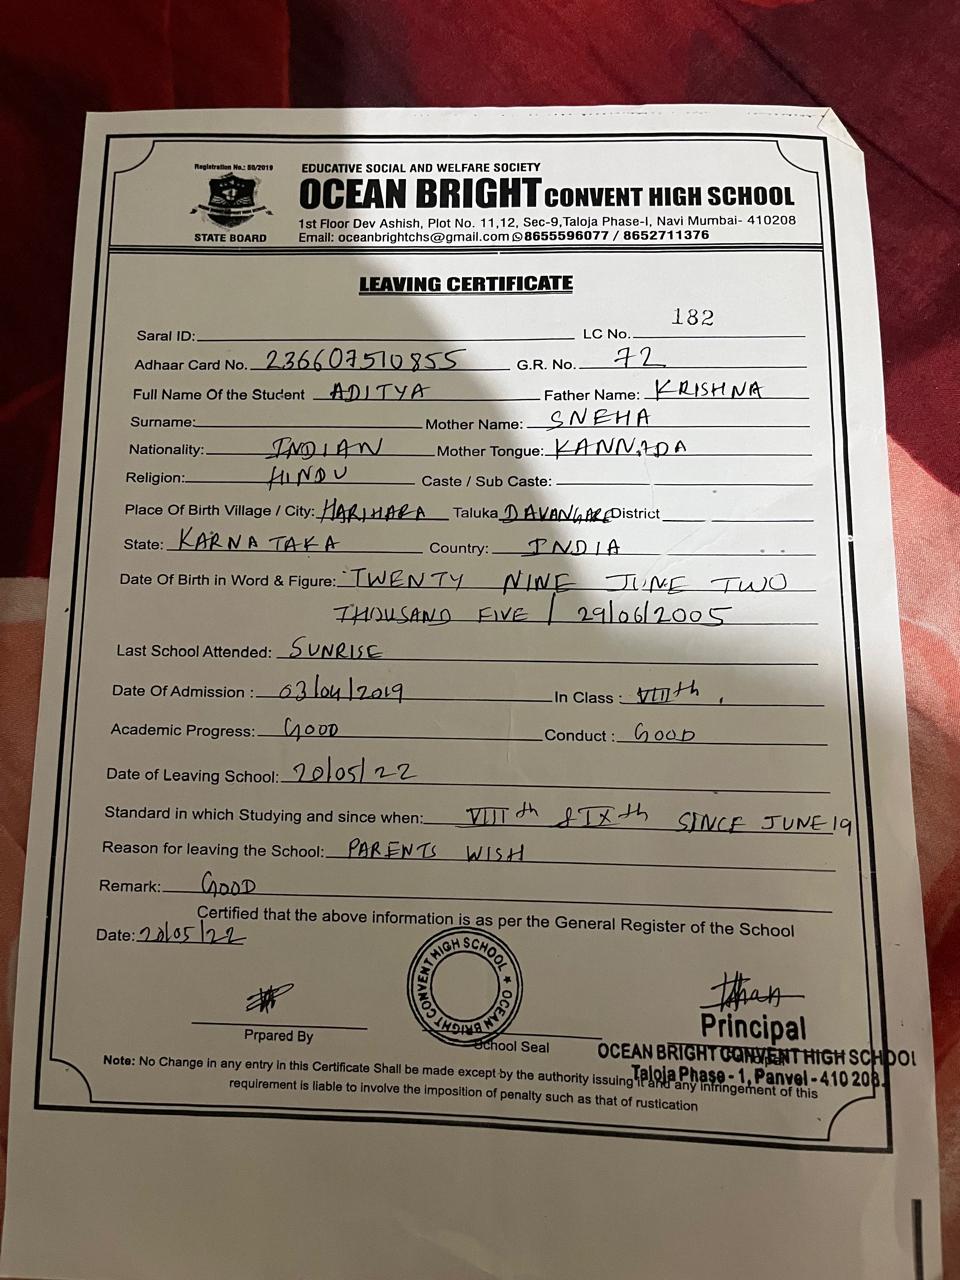 Registration No.: 80/2019
STATE BOARD
EDUCATIVE SOCIAL AND WELFARE SOCIETY
OCEAN BRIGHT CONVENT HIGH SCHOOL
1st Floor Dev Ashish, Plot No. 11,12, Sec-9,Taloja Phase-I, Navi Mumbai- 410208
Email: oceanbrightchs@gmail.com 8655596077 / 8652711376
LEAVING CERTIFICATE
Saral ID: LC No. 182
Adhaar Card No. 236607510855 G.R. No. 72
Full Name Of the Student ADITYA Father Name: KRISHNA
Surname: Mother Name: SNEHA
Nationality: INDIAN Mother Tongue: KANNADA
Religion: HINDU Caste / Sub Caste:
Place Of Birth Village / City: HARIHARA Taluka DAVANGARE District
State: KARNATAKA Country: INDIA
Date Of Birth in Word & Figure: TWENTY NINE JUNE TWO
THOUSAND FIVE / 29/06/2005
Last School Attended: SUNRISE
Date Of Admission : 03/04/2019 In Class : VIIIth
Academic Progress: GOOD Conduct : GOOD
Date of Leaving School: 20/05/22
Standard in which Studying and since when: VIIIth & IXth SINCE JUNE 19
Reason for leaving the School: PARENTS WISH
Remark: GOOD
Certified that the above information is as per the General Register of the School
Date: 20/05/22
OCEAN BRIGHT CONVENT HIGH SCHOOL
Prpared By
School Seal
Principal
OCEAN BRIGHT CONVENT HIGH SCHOOL
Taloja Phase - 1, Panvel - 410 208.
Note: No Change in any entry in this Certificate Shall be made except by the authority issuing it and any infringement of this
requirement is liable to involve the imposition of penalty such as that of rustication